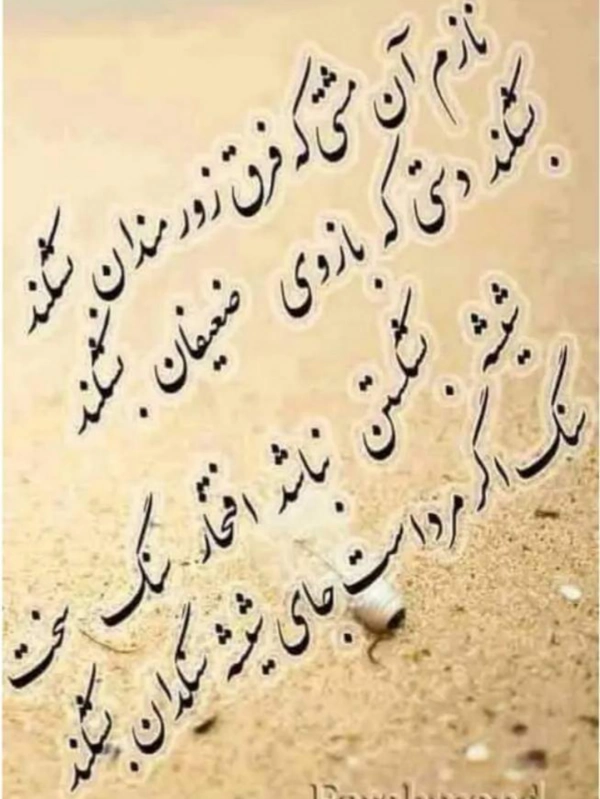 نازم آن مشتی که فرق زورمندان بشکند
بشکند دستی که بازوی ضعیفان بشکند
شیشه بشکستن نباشد افتخار سنگ سخت
سنگ اگر مرد است جای شیشه سنگدان بشکند